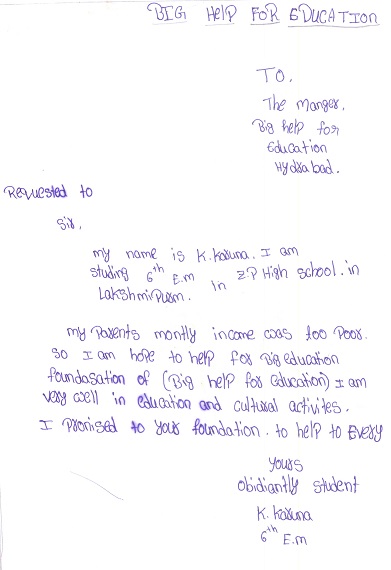 BIG HelP FoR EDUCATIon
To,
The manger,
Big help for
Education
Hydrabad.
Requested to
Sir,
my name is K. Karuna. I am
studing 6th E.m In ZP High school. in
LakshmiPurm.
my Parents montly income was too Poor.
so I am hope to help for Big education
foundasation of (Big help for education) I am
very well in education and cultural activites.
I Promised to your foundation. to help to Every
yours
obidiantly student
K. Karuna
6th E.m